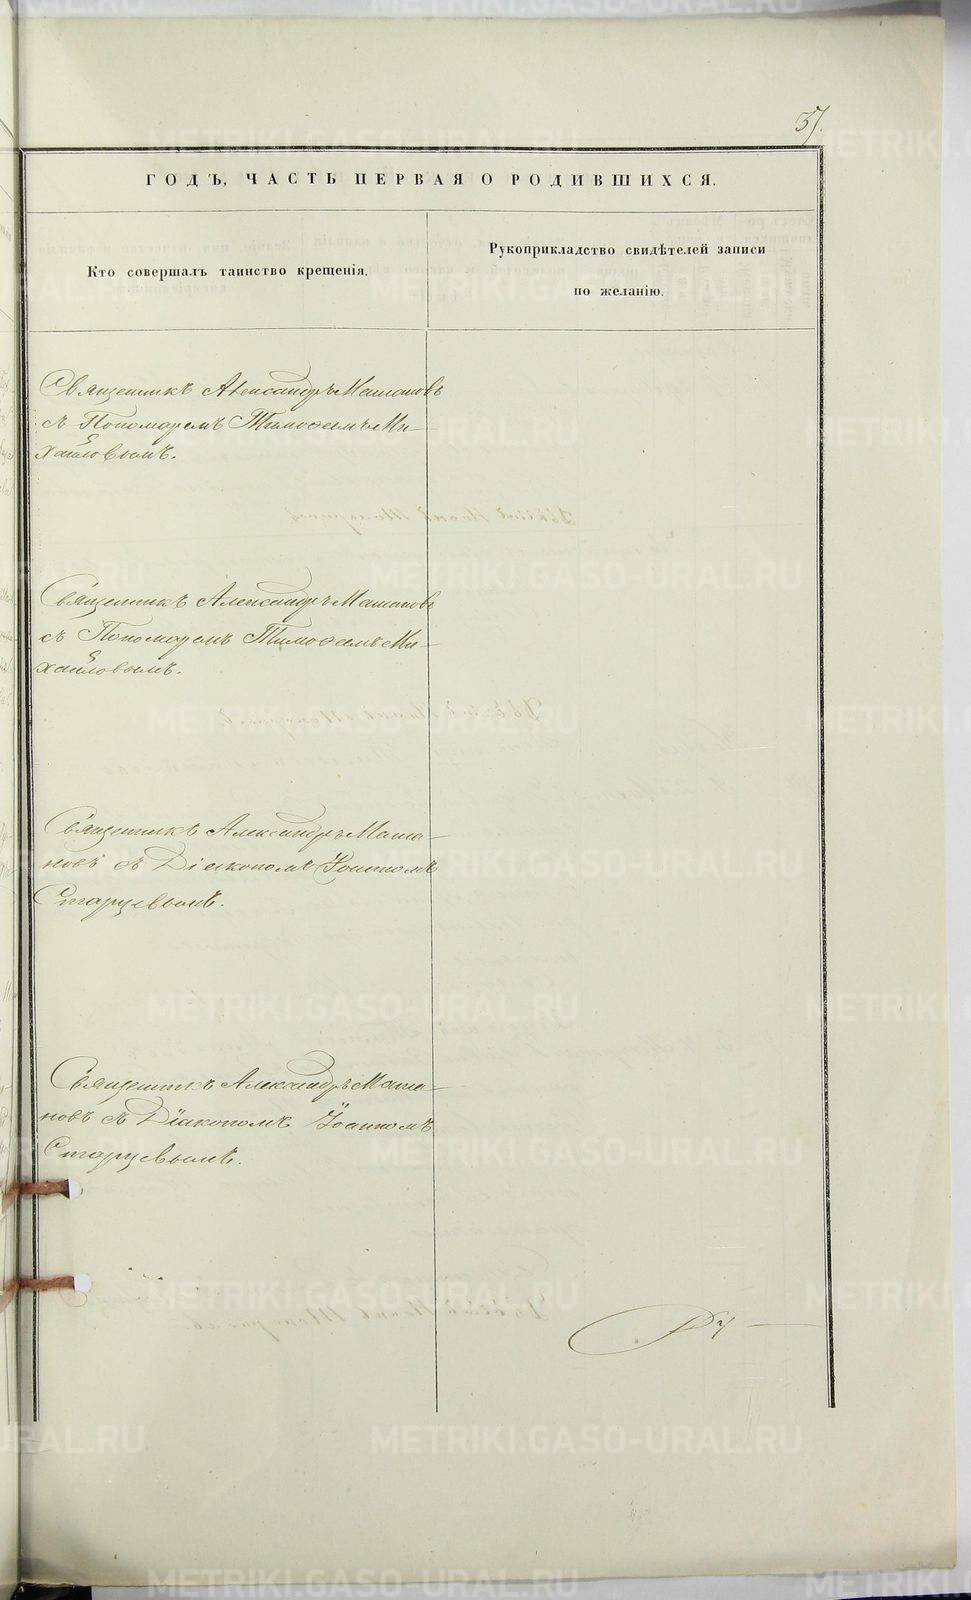 37.
ГОДЪ, ЧАСТЬ ПЕРВАЯ О РОДИВШИХСЯ.
Кто совершалъ таинство крещенія.
Рукоприкладство свидѣтелей записи
по желанію.
Священникъ Александръ Машановъ
съ Пономаремъ Тимофеемъ Ми-
хайловымъ.
Священникъ Александръ Машановъ
съ Пономаремъ Тимофеемъ Ми-
хайловымъ.
Священникъ Александръ Маша-
новъ съ Діакономъ Іоанномъ
Старцевымъ.
Священникъ Александръ Маша-
новъ съ Діакономъ Іоанномъ
Старцевымъ.
METRIKI.GASO-URAL.RU